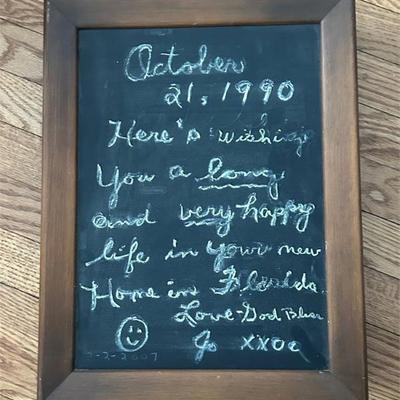 October
21, 1990
Here's wishing
You a long
and very happy
life in your new
Home in Florida.
Love - God Bless
Jo xxoo
7-2-2007